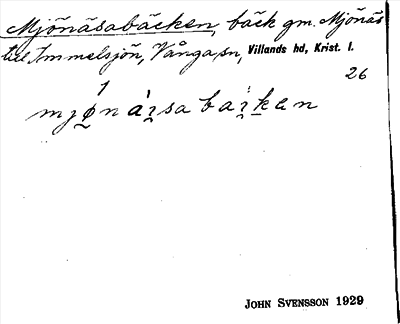 Mjönäsabäcken, bäck gm. Mjönäs
till Immelsjön, Vånga sn, Villands hd, Krist. l.
26
JOHN SVENSSON 1929